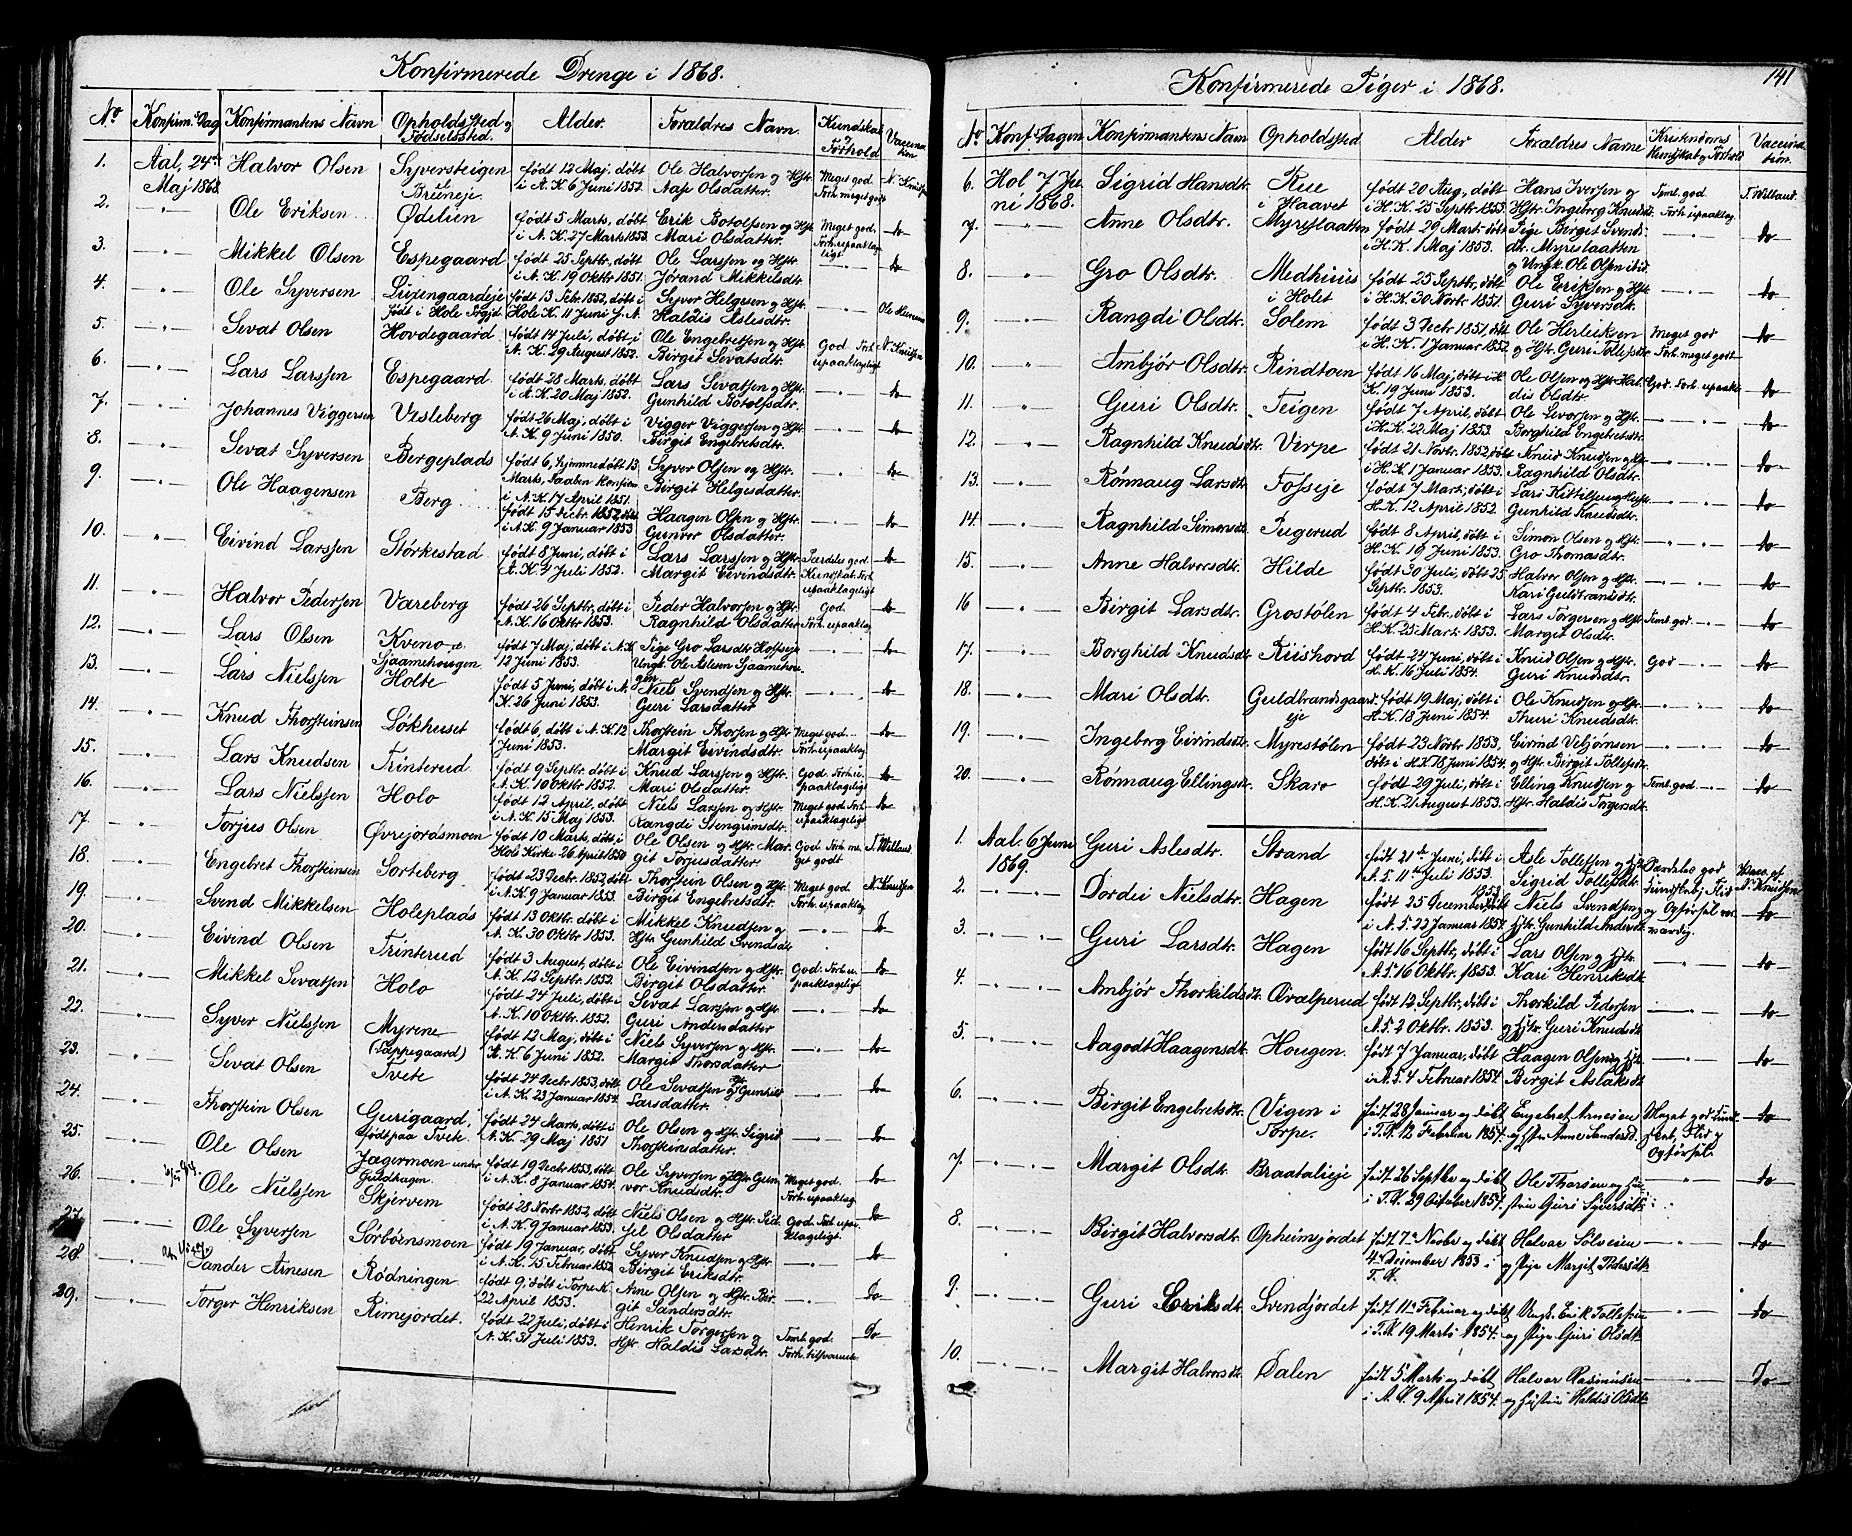 Konfirmerede Drenge i 1868.
No Konfirm. Dag Konfirmantens Navn Opholds Sted og Fødselssted. Alder. Foraldres Navn. Kundskab og Forhold Vaccination
1. Aal, 24de Maj 1868. Halvor Olsen Syversteigen Bruneje født 12 Maj, døbt i A. K. 6 Juni 1852. Ole Halvorsen og Hstr Aase Olsdatter. Meget god Forh. meget godt N. Knudsen
2. Ole Eriksen Ødelien født 5 Marts, døbt i A. K. 27 Marts 1853. Erik Botolfsen og Hstr Mari Olsdatter. Meget god. Forh. upaaklageligt do
3. Mikkel Olsen Espegaard født 25 Septbr, døbt i A. K. 19 Oktbr 1851. Ole Larssen og Hstr Jørand Mikkelsdtr do
4. Ole Syversen født i Hole Sogn født 13 Febr. 1852, døbt i Hole K. 11 Juni Syver Helgesen og Hstr. Haldis Aslesdtr.
5. Sevat Olsen Hovdegaard født 14 Juli, døbt i A. K. 29 August 1852. Ole Engebretsen og Hstr Birgit Sevatsdtr. God. Forh. upaaklageligt N. Knudsen
6. Lars Larssen Espegaard født 28 Marts, døbt i A. K. 20 Maj 1852. Lars Sevatsen og Hstr. Gunhild Botolfsdtr. do
7. Johannes Viggersen Visleberg født 26 Maj, døbt i A. K. 9 Juni 1850. Vigger Viggersen og Hstr. Birgit Engebretsdtr. do
8. Sevat Syversen Bergeplads født 6, hjemmedøbt 13 Marts, Daaben konfirm. i A. K. 17 April 1851. Syver Olsen og Hstr. Birgit Helgesdatter. do
9. Ole Haagensen Berg født 15 Decbr. 1852, døbt i A. K. 9 Januar 1853 Haagen Olsen og Hstr. Gunvor Olsdatter. do
10. Eivind Larssen Størkestad født 8 Juni, døbt i A. K. 4 Juli 1852. Lars Larssen og Hstr. Margit Eivindsdtr. Særdeles god Kundskab. Forh. upaaklageligt do
11. Halvor Pedersen Vareberg født 26 Septbr, døbt i A. K. 16 Oktbr 1853. Peder Halvorsen og Hstr. Ragnhild Olsdatter God. Forh. upaaklag. do
12. Lars Olsen født 7 Maj, døbt i A. K 12 Juni 1853. Pige Gro Larsdtr Ungk. Ole do
13. Lars Nielssen Holte født 5 Juni, døbt i A. K. 26 Juni 1853. Niels Svendsen og Hstr. Guri Larsdatter do
14. Knud Thorsteinsen Løkhuset født 6, døbt i A. K. 12 Juni 1853. Thorstein Thorsen og Hstr Margit Eivindsdtr. Meget god Forh. upaaklag do
15. Lars Knudsen Trinterud født 9 Septbr. døbt i A. K. 10 Oktbr 1852. Knud Larssen og Hstr. Mari Olsdatter. God. Forh. upaaklageligt do
16. Lars Nielssen Holo født 12 April, døbt i A. K. 15 Maj 1853. Niels Larssen og Hstr. Rangdi Stengrimsdtr. Meget god Forh. upaaklageligt do
17. Torjus Olsen Øvrejordsmoen født 10 Marts, døbt i Hols Kirke 26 April 1850 Ole Olsen og Hstr. Margit Torjusdatter. God. Forh. meget godt T. Willand
18. Engebret Thorsteinsen Sorteberg født 23 Decbr. 1852, døbt i A. K. 9 Januar 1853. Thorstein Olsen og Hstr. Birgit Engebretsdtr. Meget god. Forh. upaaklag. N. Knudsen
19. Svend Mikkelsen Holeplads født 13 Oktbr. døbt i A. K. 30 Oktbr. 1853. Mikkel Knudsen og Hstr. Gunhild Svendsdtr do
20. Eivind Olsen Trinterud født 3 August, døbt i A. K. 12 Septbr. 1852. Ole Eivindsen og Hstr. Birgit Olsdatter. God. Forh. upaaklageligt do
21. Mikkel Sevatsen Holo født 24 Juli, døbt i A. K. 10 Oktbr. 1852. Sevat Larssen og Hstr. Guri Andersdatter do
22. Syver Nielssen Myrene født 12 Maj, døbt i A. K. 6 Juni 1852. Niels Syversen og Hstr. Margit Thorsdatter do
23. Sevat Olsen Tvete født 24 Decbr 1853, døbt i A. K. 23 Januar 1854. Ole Sevatsen og Hstr Gunhild Larsdatter. do
24. Thorstein Olsen Gurigaard, født paa Tvete. født 24 Marts, døbt i A. K. 29 Maj 1851 Ole Olsen og Hstr. Sigrid Thorsteinsdatter. do
25. Ole Olsen Jægermoen under Guldhagen. født 19 Decbr 1853, døbt i A. K. 8 Januar 1854. Ole Syversen og Hstr. Gunvor Knudsdtr. Meget god. Forh. upaaklag do
26. Ole Nielssen Skjervem født 28 Novbr 1852, døbt i A. K. 9 Januar 1853. Niels Olsen og Hstr. Sidsel Olsdatter God. Forh. upaaklageligt. do
27. Ole Syversen Sørbønsmoen født 19 Januar, døbt i A. K. 15 Februar 1852 Syver Knudsen og Hstr. Birgit Eriksdtr. do
28. Sander Arnesen Rødningen født 9, døbt i Torpe K. 22 April 1853. Arne Olsen og Hstr. Birgit Sandersdtr. Do
29. Torger Henriksen Rimejordet. født 22 Juli, døbt i A. K. 31 Juli 1853. Henrik Torgersen og Hstr. Haldis Larsdtr. Temt. god. Forh. tilfvarende Do
141
Konfirmerede Piger i 1868.
No Konf. Dagen Konfirmantens Navn Opholdssted Alder Foraldres Navne Kristendoms Kundskab og Forhold Vaccination.
6. Hol 7 Juni 1868. Sigrid Hansdtr. Rue i Haavet født 20 Aug., døbt i H. K. 25 Septbr 1853. Hans Iversen og Hstr. Ingeborg Knudsdtr. Temt. god Forh. upaaklag T. Willand
7. Anne Olsdtr. Myreslaatten født 29 Mart. døbt i H. K. 1 Maj 1853. Pige Birgit Svendsdtr. Myreslaatten og Ungk. Ole Olsen ibid. do
8. Gro Olsdtr. Medhuus i Holet født 25 Septbr., døbt i H. K. 30 Novbr. 1851. Ole Eriksen og Hstr Guri Syversdtr. do
9. Rangdi Olsdtr. Solem født 3 Decbr 1851, døbt i H. K. 1 Januar 1852. Ole Herleiksen og Hstr. Guri Tollefsdtr. Meget god Forh. meget godt do
10. Ambjør Olsdtr. Rindtoen født 16 Maj, døbt i H. K. 19 Juni 1853. Ole Olsen og Hstr. Haldis Olsdtr. God. Forh. upaaklag. do
11. Guri Olsdtr. Teigen født 7 April, døbt i H. K. 22 Maj 1853. Ole Sevorsen og Hstr. Borghild Engebretsdtr. do
12. Ragnhild Knudsdtr. Virpe født 21 Novbr. 1852, døbt i H. K. 1 Januar 1853. Knud Knudsen og Hstr Ragnhild Olsdtr. do
13. Rønnaug Larsdtr. Fosseje født 7 Mart., døbt i H. K. 12 April 1852. Lars Kittilsen og Hstr. Gunhild Knudsdtr. do
14. Ragnhild Simonsdtr. Tugerud født 8 April, døbt i H. K. 19 Juni 1853. Simon Olsen og Hstr. Gro Thomasdtr. do
15. Anne Halvorsdtr. Hilde født 30 Juli, døbt 25 Septbr. 1853. Halvor Olsen og Hstr. Kari Guldbrandsdtr. do
16 Birgit Larsdtr. Grostølen født 4 Febr., døbt i H. K. 25 Mart. 1853. Lars Torgersen og Hstr. Margit Olsdtr. Temt. god do
17. Borghild Knudsdtr. Riishovd født 24 Juni, døbt i H. K. 16 Juli 1854. Knud Olsen og Hstr. Guri Knudsdtr. God do
18. Mari Olsdtr. Guldbrandsgaardeje født 19 Maj, døbt i H. K. 18 Juni 1854. Ole Knudsen og Hstr. Thuri Knudsdtr. do
19. Ingeborg Eivindsdtr. Myrestølen født 23 Novbr. 1853, døbt i H. K. 18 Juni 1854. Eivind Vebjørnsen og Hstr. Birgit Tollefsdtr. do
20. Rønnaug Ellingsdtr. Skaro født 29 Juli, døbt i H. K. 21 August 1853. Elling Knudsen og Hstr. Haldis Torgersdtr. Temt. god. do
1. Aal. 6 Juni 1869. Guri Aslesdtr. Strand født 21de Juni, døbt i A. K. 11te Juli 1853. Asle Tollefsen og Sigrid Tollefsdtr. N. Knudsen
2. Dordei Nielsdtr. Hagen født 25 December 1853 døbt i A. K. 22 Januar 1854. Niels Svendsen og Gunhild Andersdtr. do
3. Guri Larsdtr. Hagen født 16 Septbr, døbt i A. K. 16 Oktbr. 1853. Lars Olsen og Kari Henriksdtr. do
4. Ambjør Thorkildsdtr. Qvælperud født 12 Septbr, døbt i A. K. 2 Oktbr. 1853. Thorkild Pedersen og Guri Knudsdtr. do
5. Aagodt Haagensdtr. Hougen. født 7 Januar, døbt i A. K. 4 Februar 1854. Haagen Olsen og Birgit Aslaksdtr. do
6. Birgit Engebretsdtr. Vigen i Torpe. født 28 Januar og døbt i T. K. 12 Februar 1854. Engebret Arnesen og Anne Sandersd. Meget god Kundskab, Flid og Opførsel. do
7. Margit Olsdtr. Braatalieje født 26 Septbr og døbt i T. K. 29 October 1854. Ole Thorsen og Hustru Guri Syversdtr. do
8. Birgit Halvorsdtr. Opheimjordet født 7de Novbr og døbt 4de December 1853 i T. K. Halvor og Pige Margit Pedersdtr. do
9. Guri Eriksdtr. Svendjordet født 11te Februar og døbt i T. K. 19 Marts 1854. Ungk. Erik Tollefsen og Pige Guri Olsdtr. do
10. Margit Halvorsdtr. Dalen født 5 Marts og døbt i A. K. 9 April 1854. Halvor Rasmussen og Hustru Haldis Olsdtr. Do